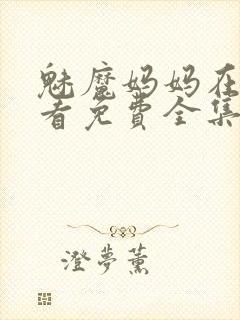 魅魔妈妈在
看免費全集
澄夢薰